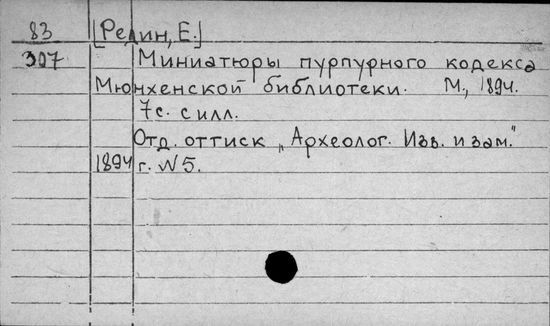 83 [Редин, Е.]
307 Миниатюры пурпурного кодекса
Мюнхенской библиотеки. М., 1894.
7с. с илл.
Отд. оттиск „Археолог. Изв. и зам."
1894 г. N5.